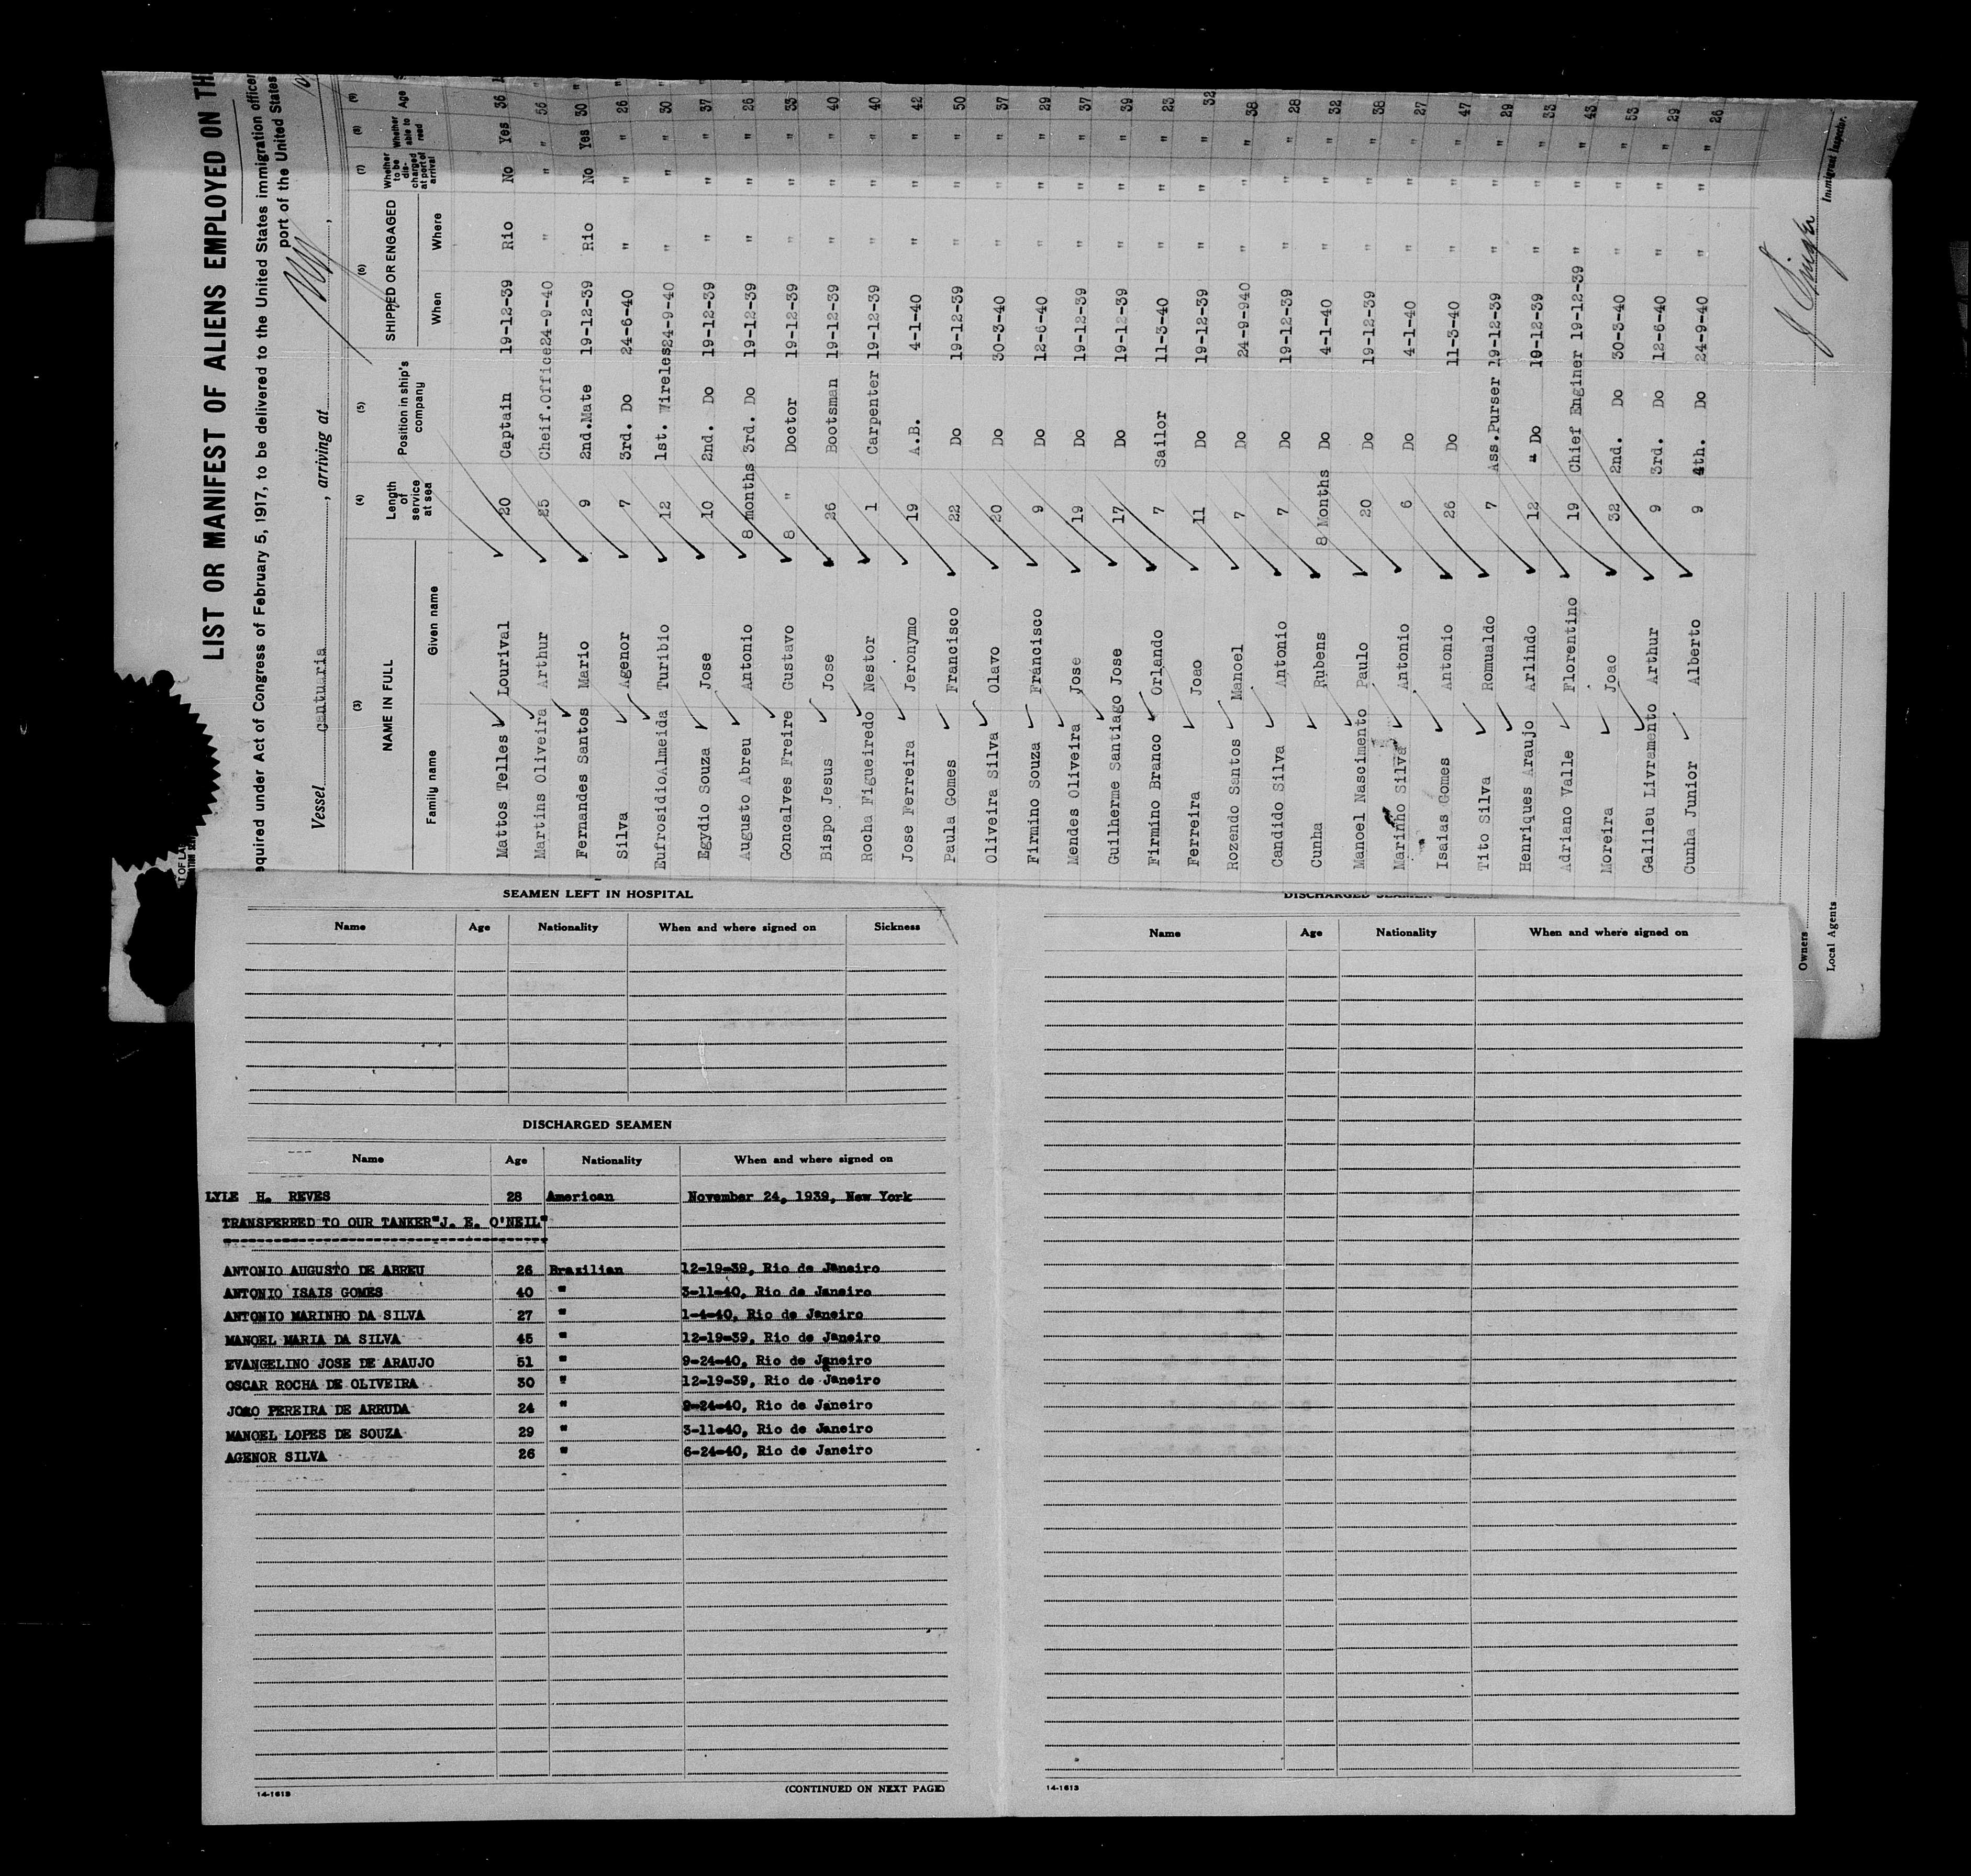 LIST OR MANIFEST OF ALIENS EMPLOYED ON TH
equired under Act of Congress of February 5, 1917, to be delivered to the United States immigration officer
port of the United States
Vessel cantuaria, arriving at
(3) (4) (5) (6) (7) (8) (9)
NAME IN FULL Length of service at sea Position in ship's company SHIPPED OR ENGAGED Whether to be discharged at port of arrival Whether able to read Age
Family name Given name When Where
Mattos Telles Lourival 20 Captain 19-12-39 Rio No Yes 36
Martins Oliveira Arthur 25 Cheif.Office24-9-40 " " " 56 "
Fernandes Santos Mario 9 2nd.Mate 19-12-39 Rio No Yes 30 "
Silva Agenor 7 3rd. Do 24-6-40 " " " 26 "
EufrosidioAlmeida Turibio 12 1st. Wireles24-9-40 " " " 30 "
Egydio Souza Jose 10 2nd. Do 19-12-39 " " " 37 "
Augusto Abreu Antonio 8 months 3rd. Do 19-12-39 " " " 26 "
Goncalves Freire Gustavo 8 " Doctor 19-12-39 " " " 33
Bispo Jesus Jose 26 Bootsman 19-12-39 " " " 40
Rocha Figueiredo Nestor 1 Carpenter 19-12-39 " " " 40
Jose Ferreira Jeronymo 19 A.B. 4-1-40 " " " 42
Paula Gomes Francisco 22 Do 19-12-39 " " " 50
Oliveira Silva Olavo 20 Do 30-3-40 " " " 37
Firmino Souza Francisco 9 Do 12-6-40 " " " 29
Mendes Oliveira Jose 19 Do 19-12-39 " " " 37
Guilherme Santiago Jose 17 Do 19-12-39 " " " 39
Firmino Branco Orlando 7 Sailor 11-3-40 " " " 23
Ferreira Joao 11 Do 19-12-39 " " " 32
Rozendo Santos Manoel 7 Do 24-9-940 " " " 38
Candido Silva Antonio 7 Do 19-12-39 " " " 28
Cunha Rubens 8 Months Do 4-1-40 " " " 32
Manoel Nascimento Paulo 20 Do 19-12-39 " " " 38
Marinho Silva Antonio 6 Do 4-1-40 " " " 27
Isaias Gomes Antonio 26 Do 11-3-40 " " " 47
Tito Silva Romualdo 7 Ass.Purser 19-12-39 " " " 29
Henriques Araujo Arlindo 12 " Do 19-12-39 " " " 33
Adriano Valle Florentino 19 Chief Enginer 19-12-39 " " " 43
Moreira Joao 32 2nd. Do 30-3-40 " " " 53
Galileu Livramento Arthur 9 3rd. Do 12-6-40 " " " 29
Cunha Junior Alberto 9 4th. Do 24-9-40 " " " 26
Immigrant Inspector.
Owners
Local Agents
SEAMEN LEFT IN HOSPITAL
Name Age Nationality When and where signed on Sickness
DISCHARGED SEAMEN
Name Age Nationality When and where signed on
LYLE H. REVES 28 American November 24, 1939, New York
TRANSFERRED TO OUR TANKER"J. E. O'NEIL"
ANTONIO AUGUSTO DE ABREU 26 Brazilian 12-19-39, Rio de Janeiro
ANTONIO ISAIS GOMES 40 " 3-11-40, Rio de Janeiro
ANTONIO MARINHO DA SILVA 27 " 1-4-40, Rio de Janeiro
MANOEL MARIA DA SILVA 45 " 12-19-39, Rio de Janeiro
EVANGELINO JOSE DE ARAUJO 51 " 9-24-40, Rio de Janeiro
OSCAR ROCHA DE OLIVEIRA 30 " 12-19-39, Rio de Janeiro
JOAO PEREIRA DE ARRUDA 24 " 9-24-40, Rio de Janeiro
MANOEL LOPES DE SOUZA 29 " 3-11-40, Rio de Janeiro
AGENOR SILVA 26 " 6-24-40, Rio de Janeiro
14-1613 (CONTINUED ON NEXT PAGE)
DISCHARGED SEAMEN
Name Age Nationality When and where signed on
14-1613